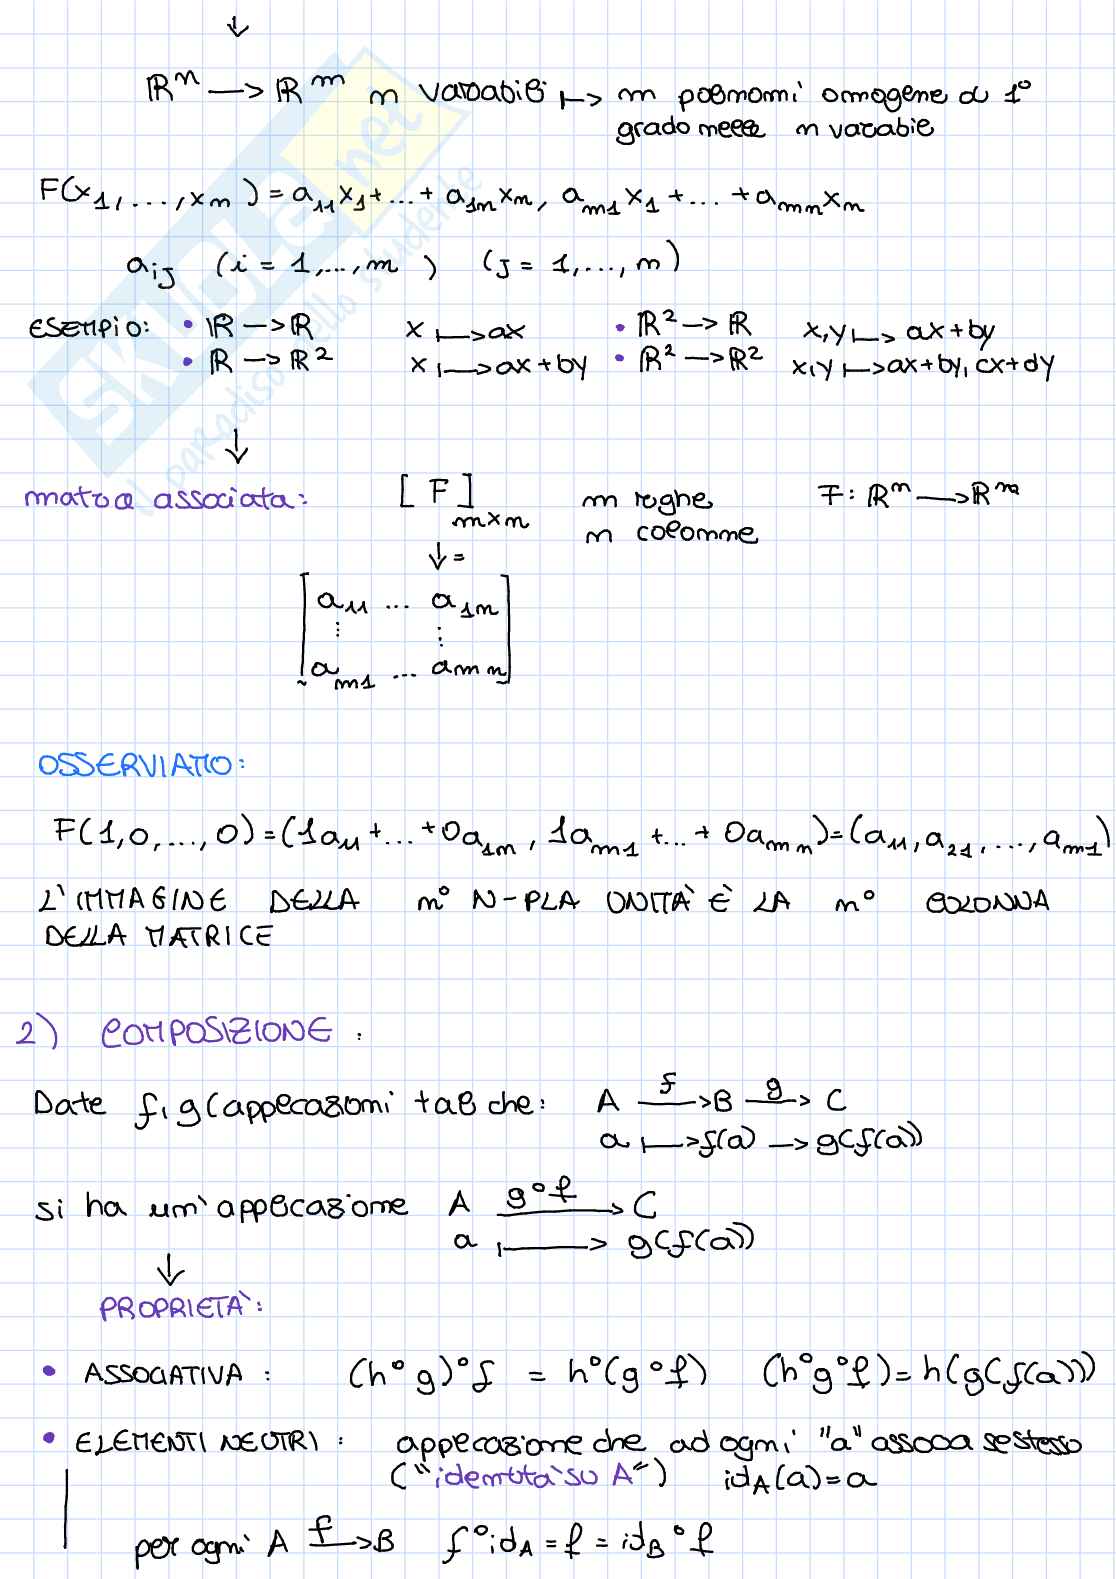 ↓
ℝⁿ → ℝᵐ n variabili ↦ m polinomi omogenei di 1°
grado nelle n variabili
F(x₁,...,xₙ) = a₁₁x₁+...+ a₁ₙxₙ, aₘ₁x₁+...+aₘₙxₙ
aᵢⱼ (i = 1,...,m) (j = 1,...,n)
ESEMPIO: • ℝ → ℝ x ↦ ax • ℝ² → ℝ x,y ↦ ax+by
• ℝ → ℝ² x ↦ ax+by • ℝ² → ℝ² x,y ↦ ax+by, cx+dy
↓
matrice associata: [F] m×n m righe F: ℝⁿ → ℝᵐ
n colonne
↓ =
[a₁₁ ... a₁ₙ
⋮ ⋮
aₘ₁ ... aₘₙ]
OSSERVIAMO:
F(1,0,...,0) = (1a₁₁+...+0a₁ₙ, 1aₘ₁+...+ 0aₘₙ) = (a₁₁, a₂₁, ..., aₘ₁)
L'IMMAGINE DELLA n° N-PLA UNITÀ È LA n° COLONNA
DELLA MATRICE
2) COMPOSIZIONE:
Date f, g (applicazioni tali che: A –f→ B –g→ C
a ↦ f(a) → g(f(a))
si ha un'applicazione A –g∘f→ C
a ↦ g(f(a))
↓
PROPRIETÀ:
• ASSOCIATIVA: (h∘g)∘f = h∘(g∘f) (h∘g∘f) = h(g(f(a)))
• ELEMENTI NEUTRI: applicazione che ad ogni "a" associa se stesso
("identità su A") id_A(a)=a
per ogni A –f→ B f∘id_A = f = id_B∘f
SKUOLA.net
il paradiso dello studente